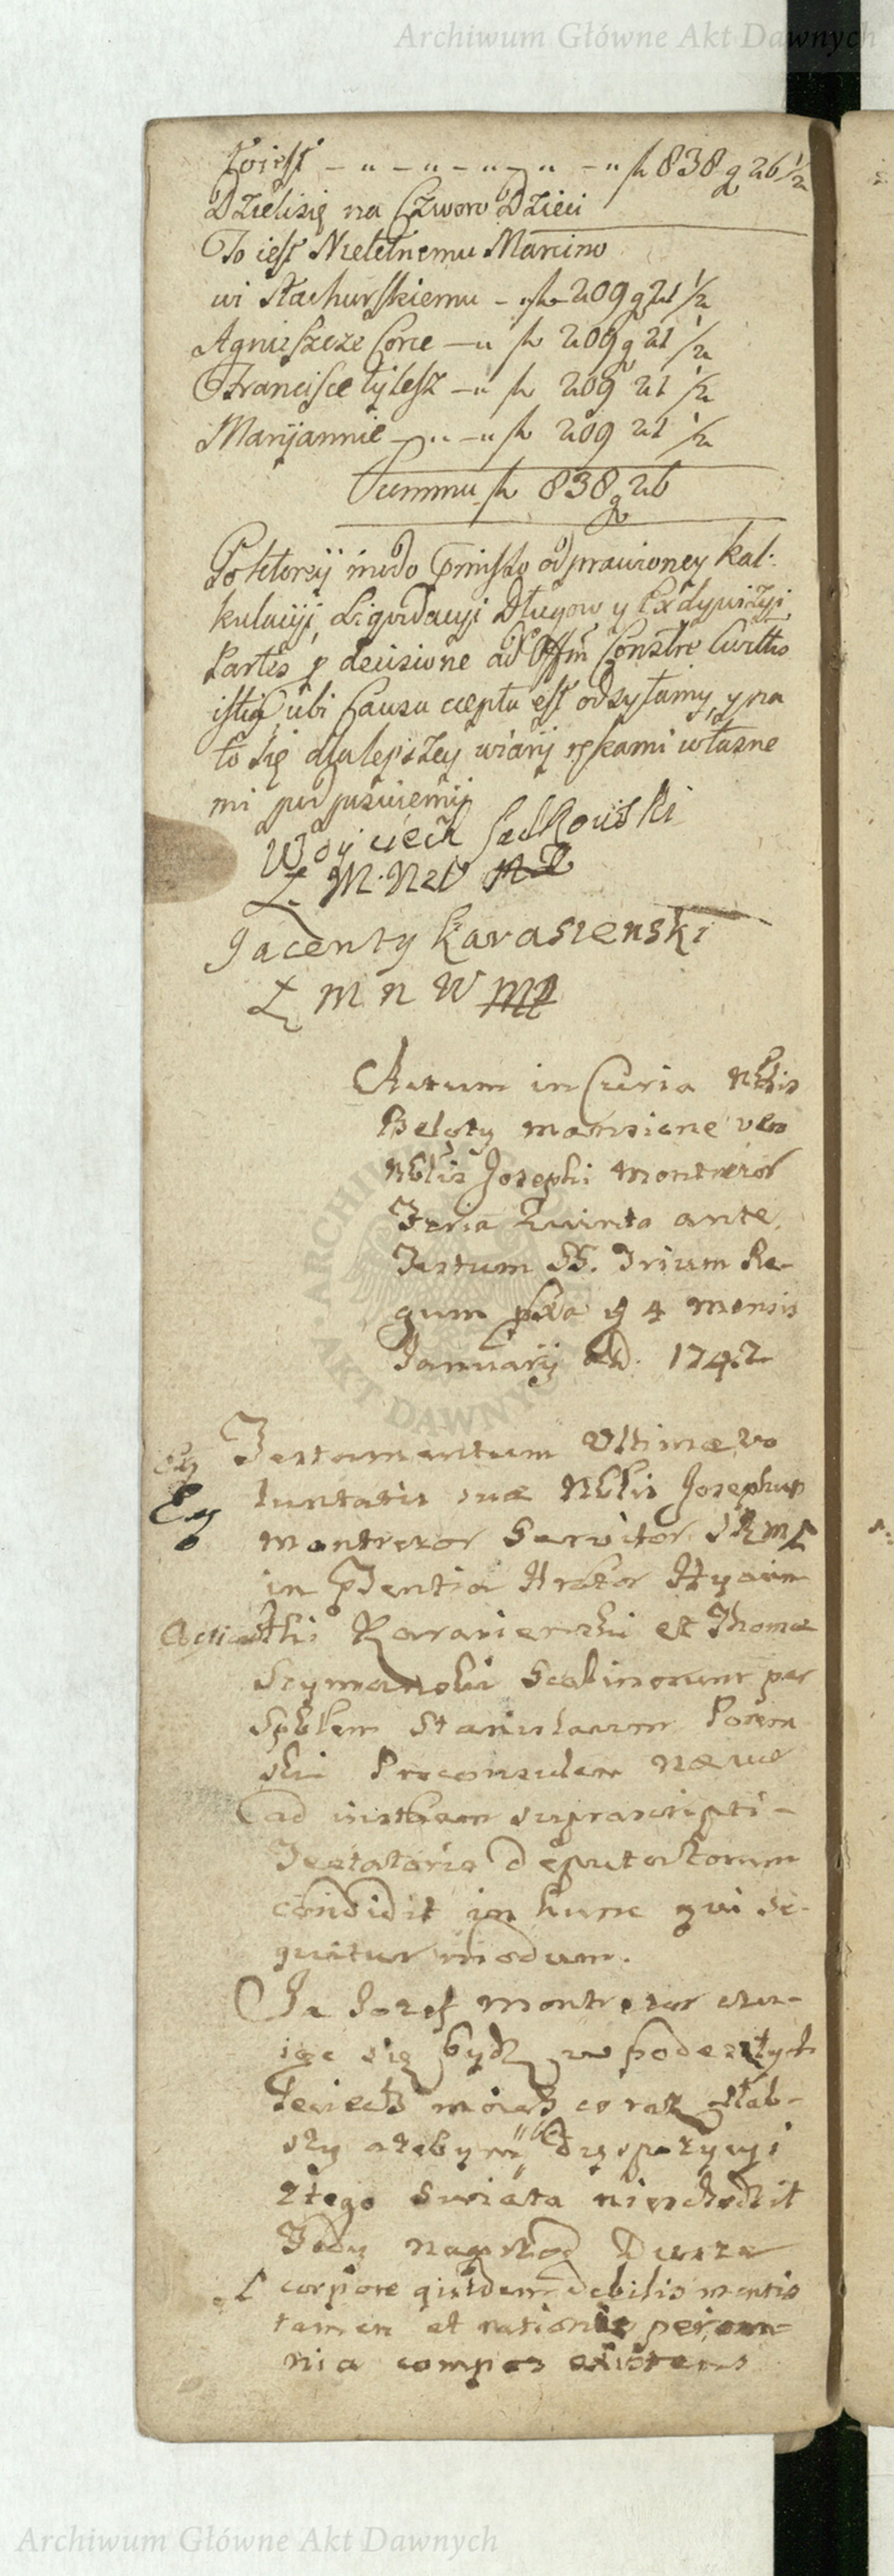 Archiwum Główne Akt Dawnych
To iest - " - " - " - " - " fl 838 g 26 1/2
Dzielisię na Czworo Dzieci
To iest Nieletnemu Marcino
wi Stachurskiemu - " fl 209 g 21 1/2
Agnieszcze Corce - " fl 209 g 21 1/2
Francisce tylesz - " fl 209 21 1/2
Maryannie - " - " fl 209 21 1/2
Summa fl 838 g 26
Po ktorey modo pmisso odprawioney kal-
kulacyi, Liqwidacyi Długow y Exdywizyi
Partes p decisione ad Offm Consulre Civittis
istius ubi Causa cœpta est odsyłamy, y na
to się dla lepszey wiary rękami własne
mi podpisuiemy
Woyciech Sadkowski
Ł. M. N W mp
Jacenty Karasienski
Ł M N W mp
Actum in Curia Nblis
Beloty mansione vero
Nblis Josephi Montrezor
Feria Quinta ante
Festum SS. Trium Re-
gum pxa d 4 Mensis
January AD. 1742
Testamentum Ultimæ vo
luntatis suæ Nblis Josephus
Montrezor Servitor SRM
in Pntia Hyacin
thi Karasienski et Thomæ
Szymanski Scabinorum per
Spblem Stanislaum
ski Proconsulem
ad instiam suprascripti
Testatoris deputatorum
condidit in hunc qui se-
quitur modum.
Ja Jozef Montrezor czu-
iąc się bydz w podeszłych
leciech moich coraz słab-
szy ażebym bez dyspozycyi
z tego swiata niezchodził
Tedy naprzod Dusze
corpore quidem debilis mentis
tamen et rationis per om-
nia compos existens
ARCHIWUM
AKT DAWNYCH
Archiwum Główne Akt Dawnych